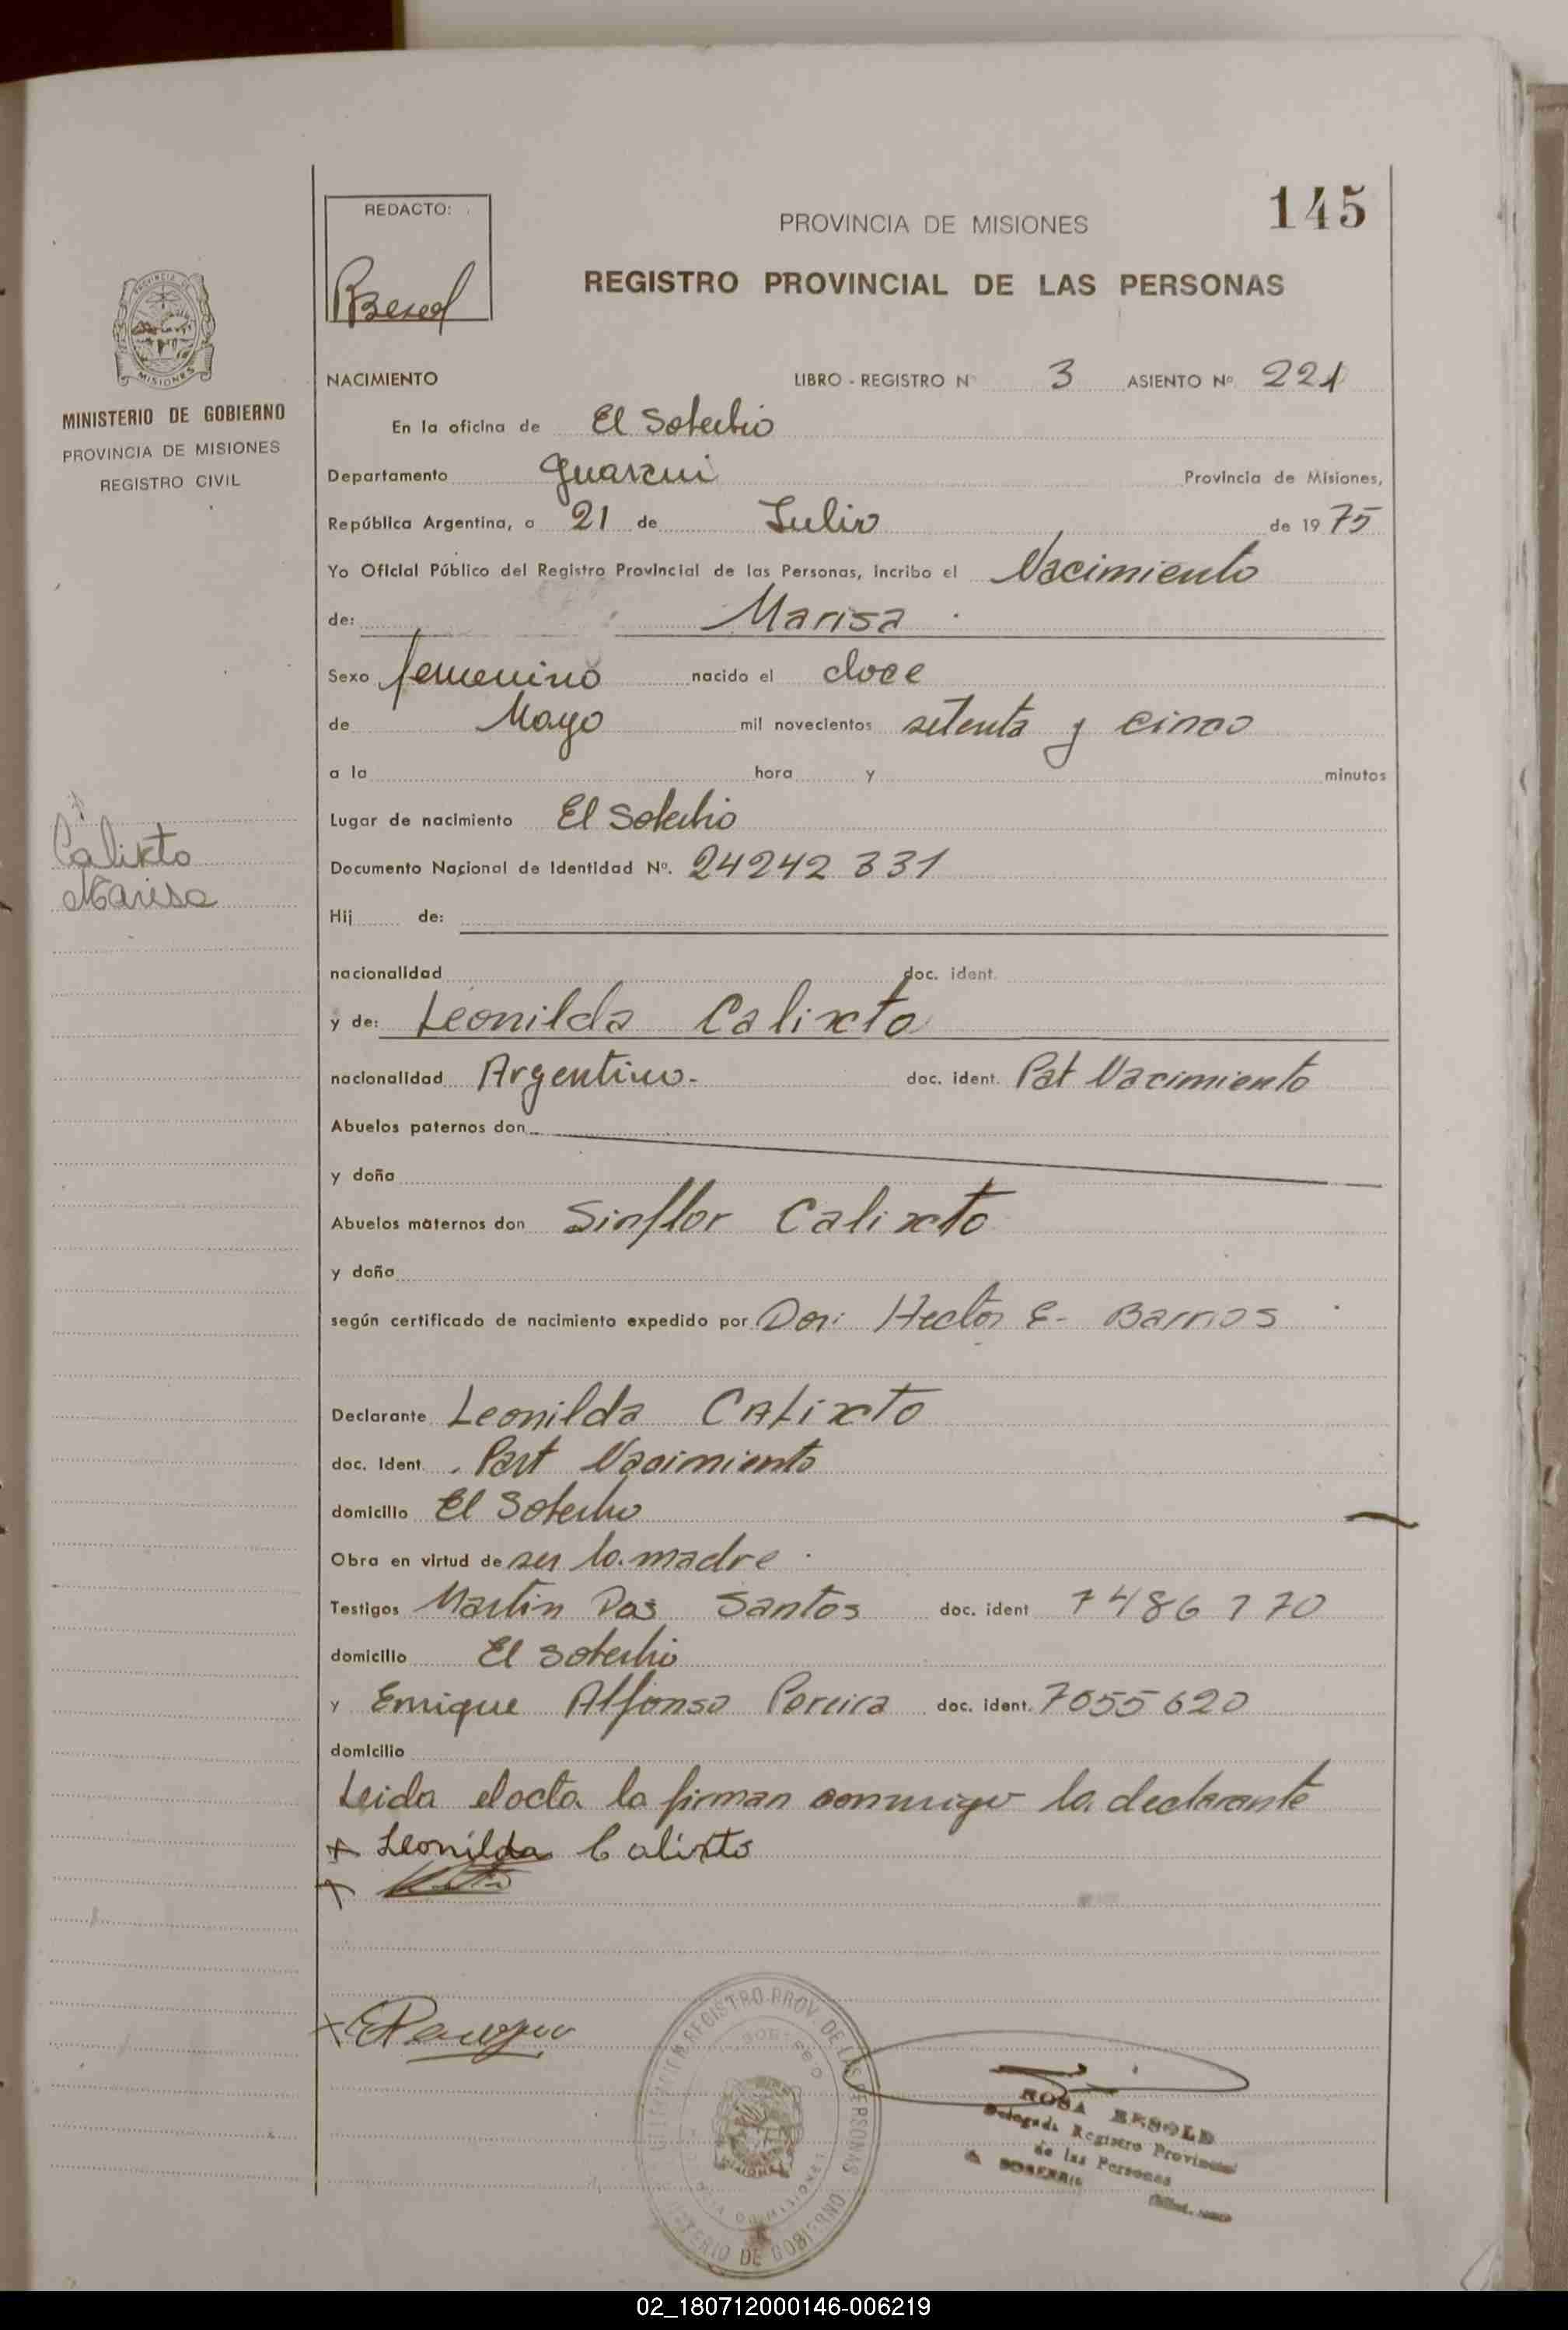 145
REDACTO:
PROVINCIA DE MISIONES
REGISTRO PROVINCIAL DE LAS PERSONAS
MISIONES
MINISTERIO DE GOBIERNO
PROVINCIA DE MISIONES
REGISTRO CIVIL
NACIMIENTO LIBRO - REGISTRO Nº 3 ASIENTO Nº 221
En la oficina de El Soberbio
Departamento Guarani Provincia de Misiones,
República Argentina, a 21 de Julio de 1975
Yo Oficial Público del Registro Provincial de las Personas, incribo el Nacimiento
de: Marisa
Sexo femenino nacido el doce
de Mayo mil novecientos setenta y cinco
a la hora y minutos
Lugar de nacimiento El Soberbio
Calixto
Marisa
Documento Nacional de Identidad Nº. 24242331
Hij de:
nacionalidad doc. ident.
y de: Leonilda Calixto
nacionalidad Argentina- doc. ident. Pat Nacimiento
Abuelos paternos don
y doña
Abuelos maternos don Sinflor Calixto
y doña
según certificado de nacimiento expedido por Hector E- Barrios
Declarante Leonilda Calixto
doc. Ident. Part Nacimiento
domicilio El Soberbio
Obra en virtud de ser la madre
Testigos Martin Dos Santos doc. ident 7486770
domicilio El Soberbio
y Enrique Alfonso Pereira doc. ident. 7055620
domicilio
Leida el acta la firman conmigo la declarante
x Leonilda Calixto
REGISTRO PROV. DE LAS PERSONAS
MISIONES
MINISTERIO DE GOBIERNO
ROSA BESOLD
Delegada Registro Provincial
de las Personas
02_180712000146-006219